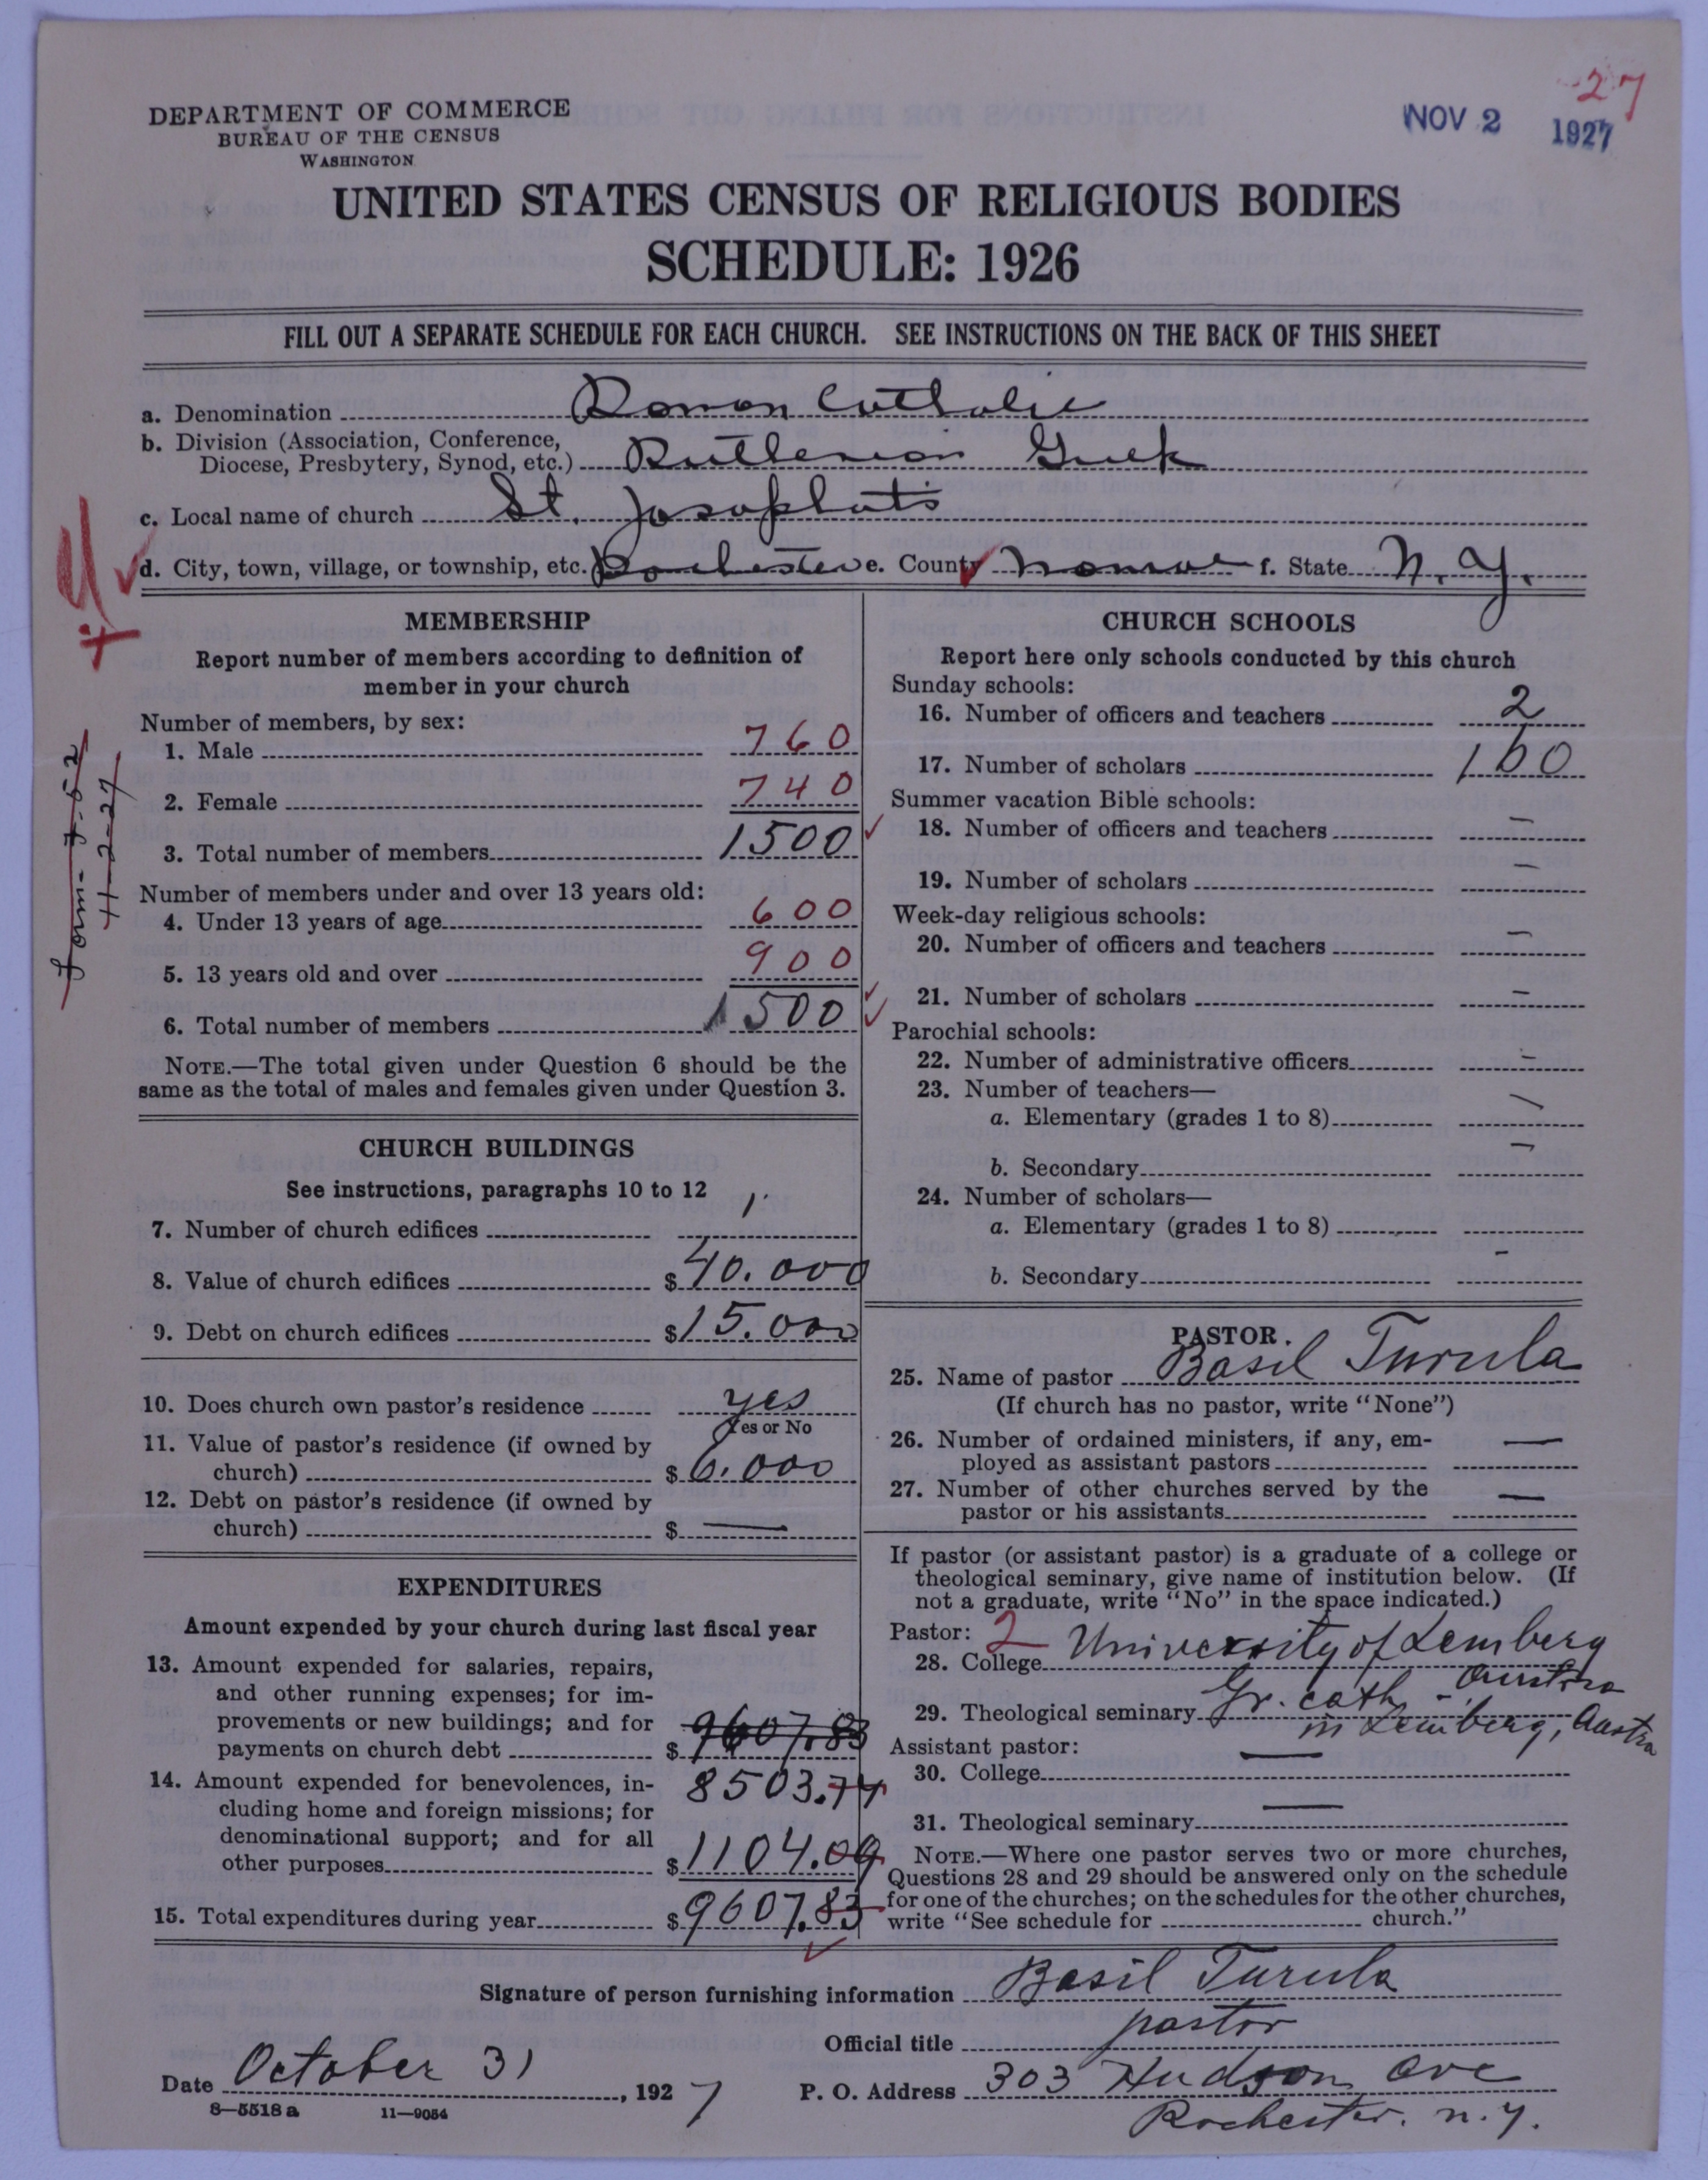 27
NOV 2 1927
DEPARTMENT OF COMMERCE
BUREAU OF THE CENSUS
WASHINGTON
UNITED STATES CENSUS OF RELIGIOUS BODIES
SCHEDULE: 1926
FILL OUT A SEPARATE SCHEDULE FOR EACH CHURCH. SEE INSTRUCTIONS ON THE BACK OF THIS SHEET
a. Denomination Roman Catholic
b. Division (Association, Conference,
Diocese, Presbytery, Synod, etc.) Ruthenian Greek
c. Local name of church St. Josaphat's
d. City, town, village, or township, etc. Rochester e. County Monroe f. State N. Y.
Form 7-52
11-2-27
MEMBERSHIP
Report number of members according to definition of
member in your church
Number of members, by sex:
1. Male 760
2. Female 740
3. Total number of members 1500
Number of members under and over 13 years old:
4. Under 13 years of age 600
5. 13 years old and over 900
6. Total number of members 1500
NOTE.—The total given under Question 6 should be the
same as the total of males and females given under Question 3.
CHURCH BUILDINGS
See instructions, paragraphs 10 to 12
7. Number of church edifices 1
8. Value of church edifices $40.000
9. Debt on church edifices $15.000
10. Does church own pastor's residence yes
Yes or No
11. Value of pastor's residence (if owned by
church) $6.000
12. Debt on pastor's residence (if owned by
church) $ —
EXPENDITURES
Amount expended by your church during last fiscal year
13. Amount expended for salaries, repairs,
and other running expenses; for im-
provements or new buildings; and for
payments on church debt $ 9607.83
8503.74
14. Amount expended for benevolences, in-
cluding home and foreign missions; for
denominational support; and for all
other purposes $1104.09
15. Total expenditures during year $9607.83
CHURCH SCHOOLS
Report here only schools conducted by this church
Sunday schools:
16. Number of officers and teachers 2
17. Number of scholars 160
Summer vacation Bible schools:
18. Number of officers and teachers —
19. Number of scholars —
Week-day religious schools:
20. Number of officers and teachers —
21. Number of scholars —
Parochial schools:
22. Number of administrative officers —
23. Number of teachers—
a. Elementary (grades 1 to 8) —
b. Secondary —
24. Number of scholars—
a. Elementary (grades 1 to 8)
b. Secondary —
PASTOR.
25. Name of pastor Basil Turula
(If church has no pastor, write "None")
26. Number of ordained ministers, if any, em-
ployed as assistant pastors —
27. Number of other churches served by the
pastor or his assistants —
If pastor (or assistant pastor) is a graduate of a college or
theological seminary, give name of institution below. (If
not a graduate, write "No" in the space indicated.)
Pastor: 2
28. College University of Lemberg
Austria
29. Theological seminary Gr. cath. -
in Lemberg, Austria
Assistant pastor:
30. College —
31. Theological seminary —
NOTE.—Where one pastor serves two or more churches,
Questions 28 and 29 should be answered only on the schedule
for one of the churches; on the schedules for the other churches,
write "See schedule for church."
Signature of person furnishing information Basil Turula
Official title pastor
Date October 31, 1927 P. O. Address 303 Hudson Ave
Rochester. N. Y.
8—5518 a 11—9054